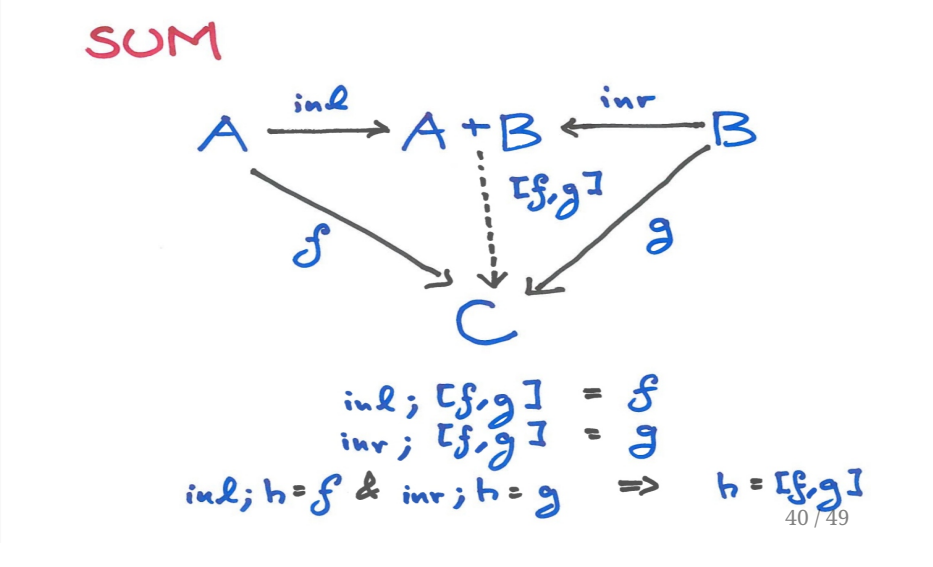 SUM
inl inr
A A + B B
[f,g]
f g
C
inl; [f,g] = f
inr; [f,g] = g
inl; h = f & inr; h = g ⇒ h = [f,g]
40 / 49